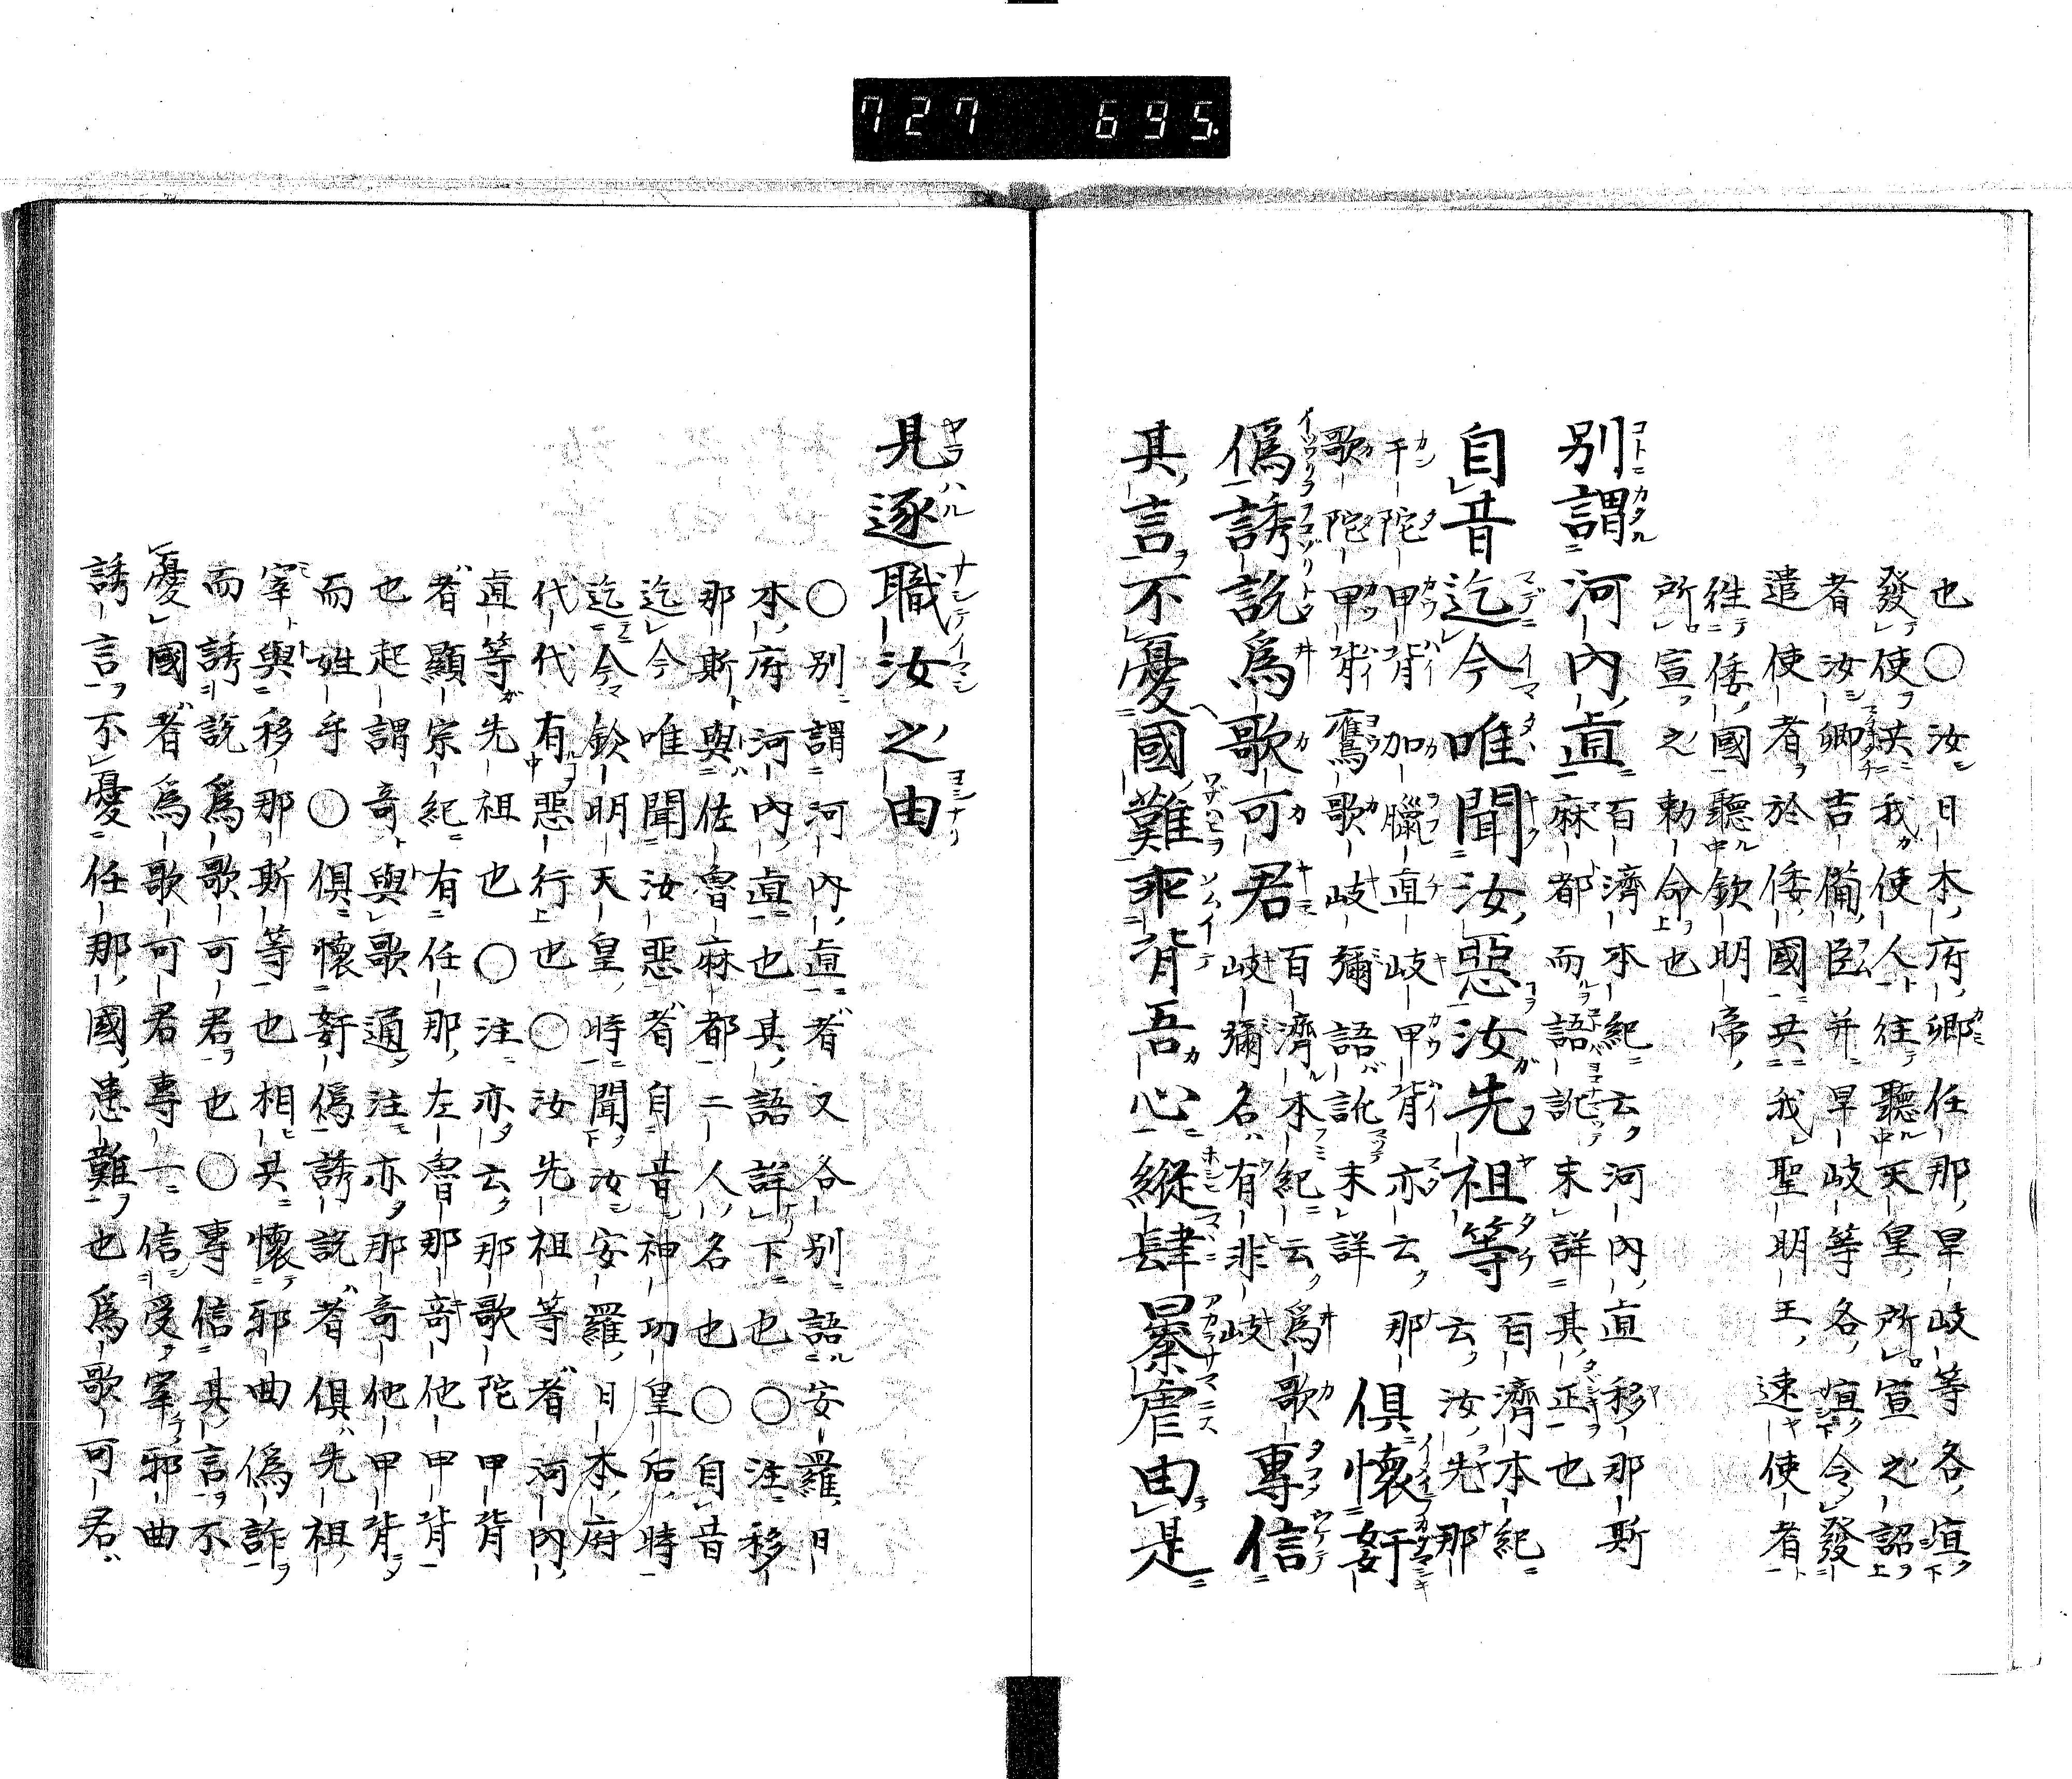 727 695.
也〇汝日本府卿任那旱岐等各宜
發使共我使人往聽天皇所宣之詔
者汝卿吉備臣并旱岐等各宜令發
遣使者於倭國共我聖明王速使者
往倭國聽欽明帝
所宣之勅命也
別謂河內直百濟本紀云河內直移那斯
麻都而語訛未詳其正也
自昔迄今唯聞汝惡汝先祖等百濟本紀
云汝先那
干陀甲背加臘直岐甲背亦云那
歌陀甲背鷹歌岐彌語訛未詳俱懷姧
僞誘說爲歌可君百濟本紀云爲歌
岐彌名有非岐專信
其言不憂國難乖背吾心縱肆暴虐由是
見逐職汝之由
〇別謂河內直者又各別語安羅日
本府河內直也其語詳下也〇注移
那斯與佐魯麻都二人名也〇自昔
迄今唯聞汝惡者自昔神功皇后時
迄今欽明天皇時聞汝安羅日本府
代代有惡行也〇汝先祖等者河內
直等先祖也〇注亦云那歌陀甲背
者顯宗紀有任那左魯那奇他甲背
也起謂奇與歌通注亦那奇他甲背
而姓乎〇俱懷姧僞誘說者俱先祖
宰與移那斯等也相共懷邪曲僞詐
而誘說爲歌可君也〇專信其言不
憂國者爲歌可君專一信受宰邪曲
誘言不憂任那國患難也爲歌可君